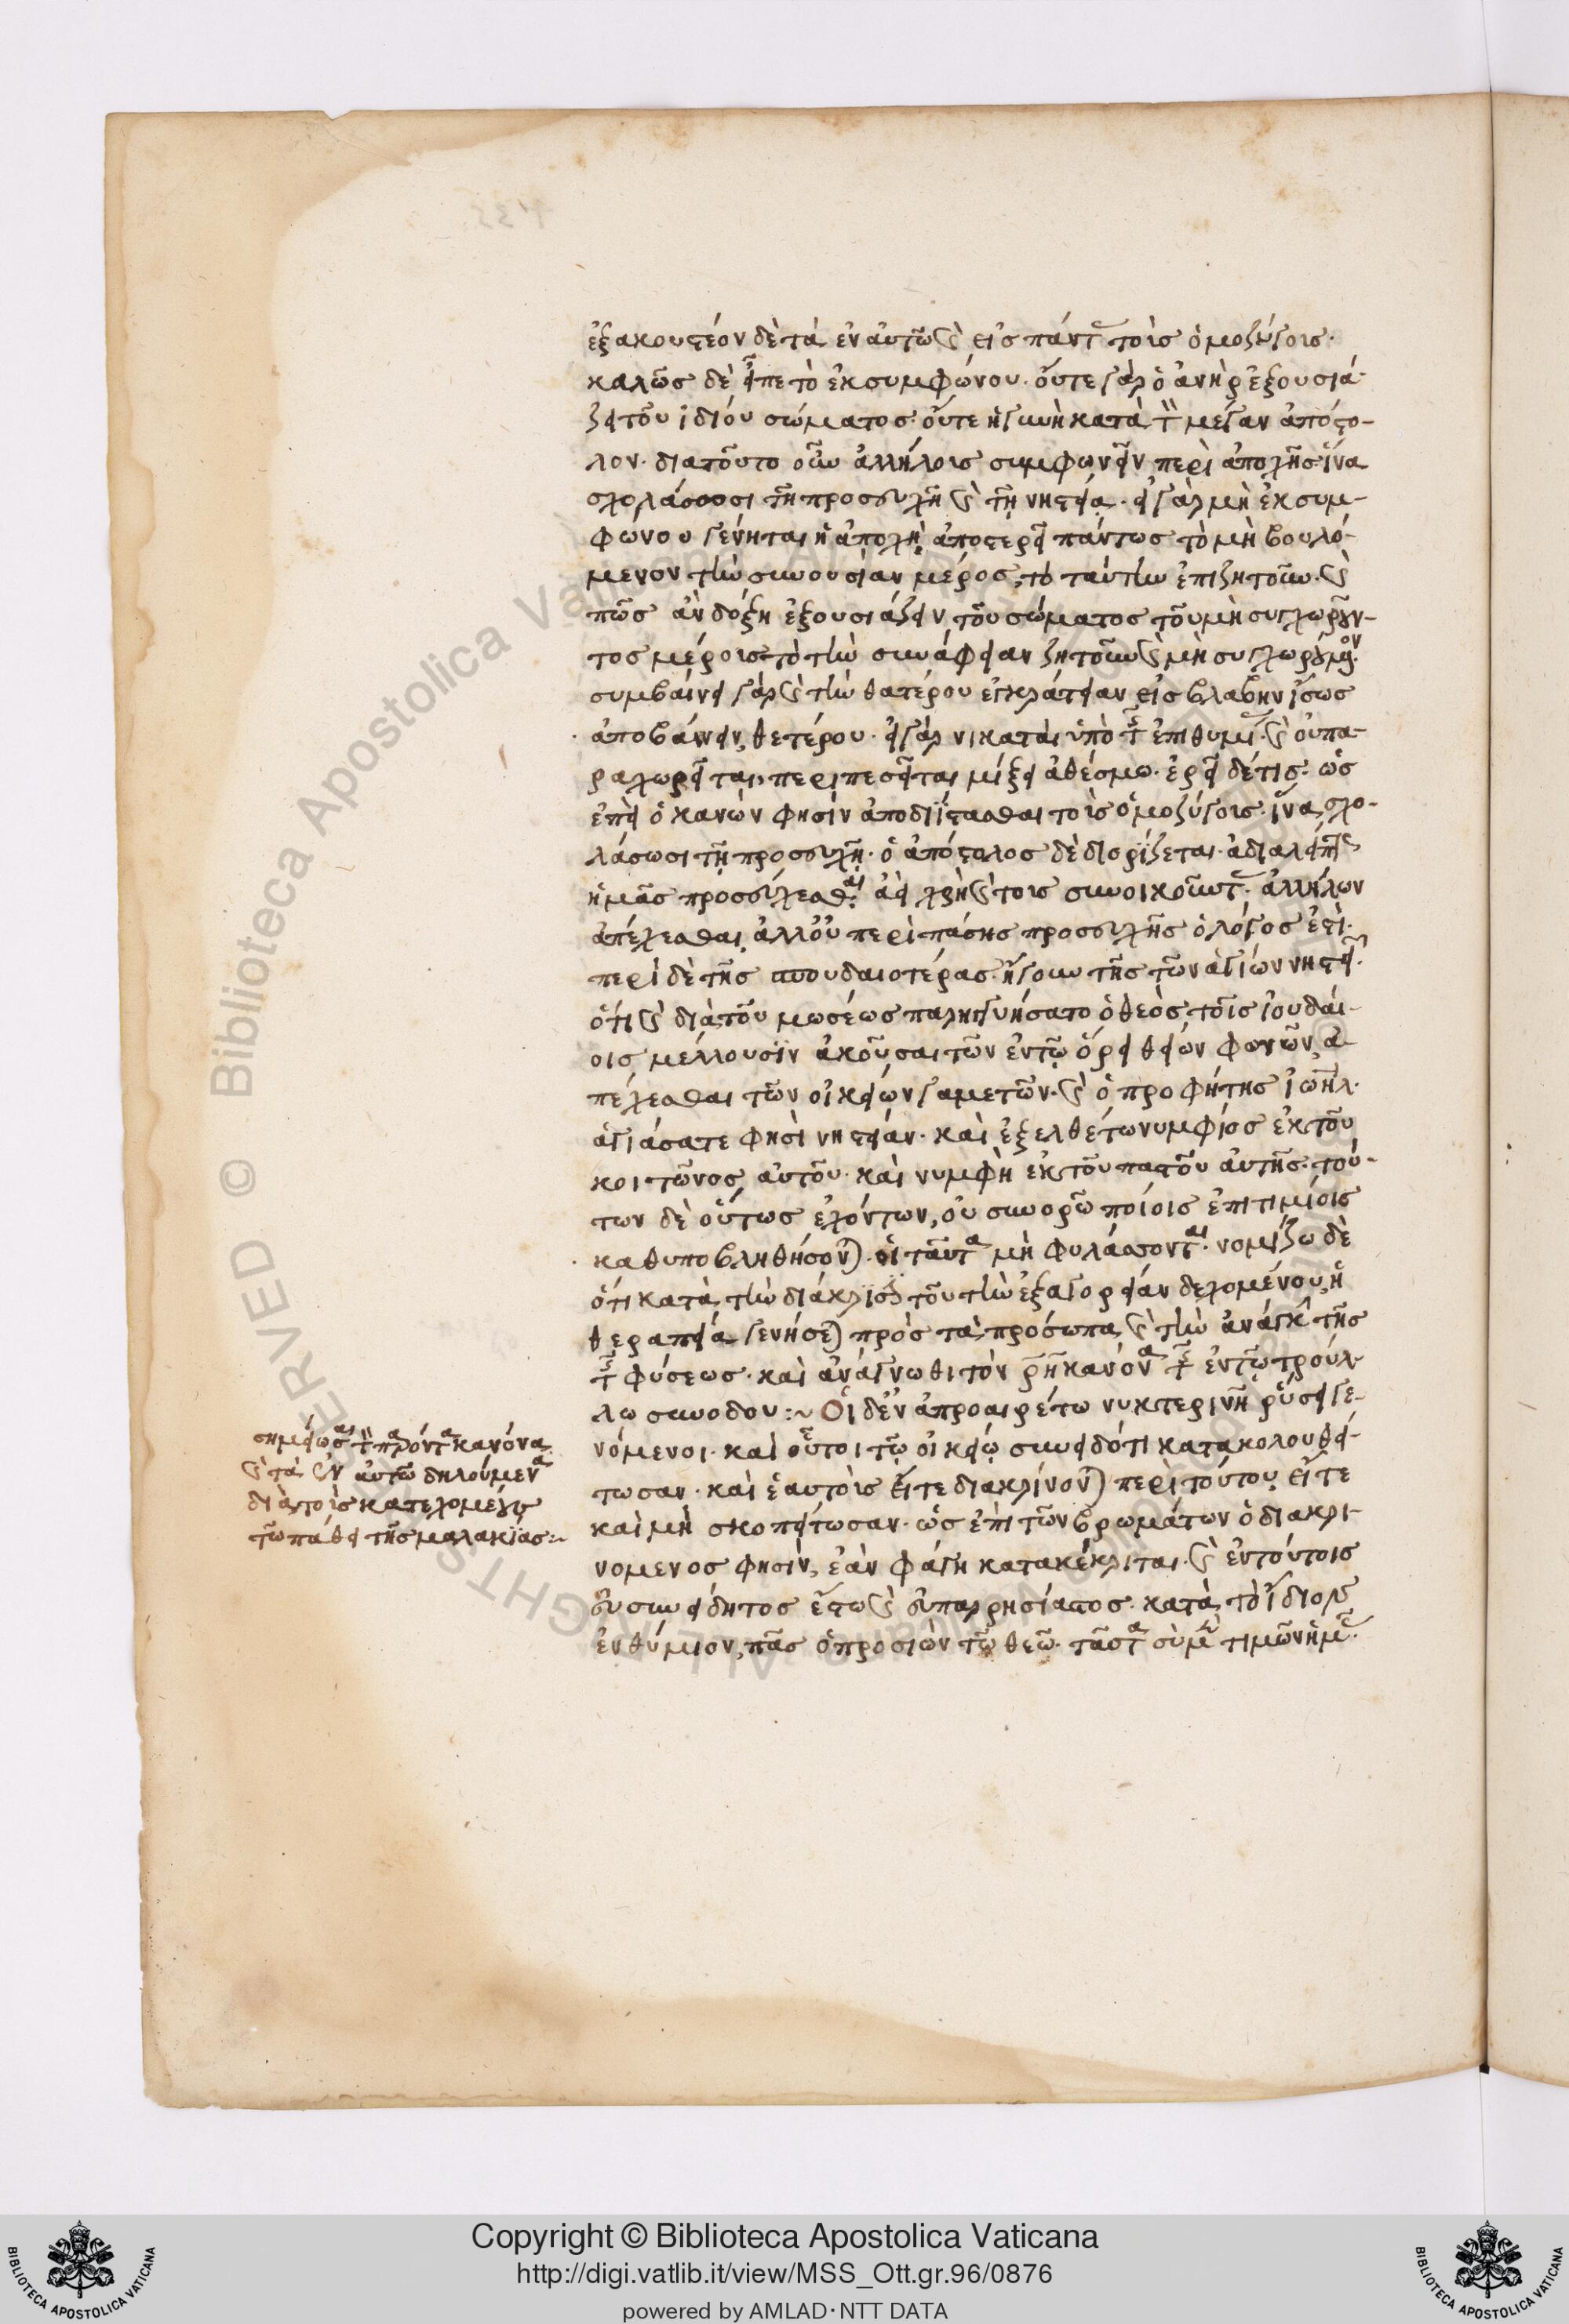 ἐξακουστέον δὲ τὰ ἐν αὐτῶ καὶ εἰς πάντας τοὺς ὁμοζύγοις·
καλῶς δὲ εἶπε τὸ ἐκ συμφώνου· οὔτε γὰρ ὁ ἀνὴρ ἐξουσιά-
ζει τοῦ ἰδίου σώματος· οὔτε ἡ γυνὴ κατὰ τὸν μέγαν ἀπόστο-
λον· διατοῦτο οὖν ἀλλήλοις συμφωνεῖν περὶ ἀποχῆς· ἵνα
σχολάσωσι τῆ προσευχῆ καὶ τῆ νηστεία· εἰ γὰρ μὴ ἐκ συμ-
φώνου γένηται ἡ ἀποχὴ, ἀποστερεῖ πάντως τὸ μὴ βουλό-
μενον τὴν συνουσίαν μέρος, τὸ ταύτην ἐπιζητοῦν· καὶ
πῶς ἂν δόξη ἐξουσιάζειν τοῦ σώματος τοῦ μὴ συγχωροῦν-
τος μέρους τὸ τὴν συνάφειαν ζητοῦν καὶ μὴ συγχωρούμενον·
συμβαίνει γὰρ καὶ τὴν θατέρου ἐγκράτειαν εἰς βλάβην ἴσως
ἀποβαίνειν θετέρου· εἰ γὰρ νικᾶται ὑπὸ τῆς ἐπιθυμίας καὶ οὐ πα-
ραχωρεῖται, περιπεσεῖται μίξει ἀθέσμω· ἐρεῖ δέ τις· ὡς
ἐπεὶ ὁ κανών φησιν ἀποδιΐστασθαι τοὺς ὁμοζύγοις· ἵνα σχο-
λάσωσι τῆ προσευχῆ· ὁ ἀπόστολος δὲ διορίζεται· ἀδιαλείπτως
ἡμᾶς προσεύχεσθαι· ἀεὶ χρὴ καὶ τοῖς συνοικοῦντας ἀλλήλων
ἀπέχεσθαι, ἀλλ οὐ περὶ πάσης προσευχῆς ὁ λόγος ἐστί·
περὶ δὲ τῆς σπουδαιοτέρας· ἤγουν τῆς τῶν ἁγίων νηστειῶν·
ὅτι καὶ διὰ τοῦ μωσέως παρηγγυήσατο ὁ θεὸς τοῖς ἰουδαί-
οις μέλλουσιν ἀκοῦσαι τῶν ἐν τῷ ὄρει θείων φωνῶν, ἀ-
πέχεσθαι τῶν οἰκείων γαμετῶν· καὶ ὁ προφήτης ἰωὴλ·
ἁγιάσατε φησὶ νηστείαν· καὶ ἐξελθέτω νυμφίος ἐκ τοῦ
κοιτῶνος αὐτοῦ· καὶ νυμφὴ ἐκ τοῦ παστοῦ αὐτῆς· τού-
των δὲ οὕτως ἐχόντων, οὐ συνορῶ ποίοις ἐπιτιμίοις
καθυποβληθήσονται οἱ ταῦτα μὴ φυλάσσοντες· νομίζω δὲ
ὅτι κατὰ τὴν διάκρισιν τοῦ τὴν ἐξαγορείαν δεχομένου, ἡ
θεραπεία γενήσεται πρὸς τὰ πρόσωπα καὶ τὴν ἀνάγκην τῆς
τῆς φύσεως· καὶ ἀνάγνωθι τὸν ρη κανόνα τῆς ἐν τῶ τρούλ-
λω συνόδου :~ Οἱ δ' ἐν ἀπροαιρέτω νυκτερινῆ ῥύσει γε-
νόμενοι· καὶ οὗτοι τῷ οἰκείῳ συνειδότι κατακολουθεί-
τωσαν· καὶ ἑαυτοὺς εἴτε διακρίνονται περὶ τούτου, εἴτε
καὶ μὴ σκοπείτωσαν· ὡς ἐπὶ τῶν βρωμάτων ὁ διακρι-
νόμενος φησὶν, ἐὰν φάγη κατακέκριται· καὶ ἐν τούτοις
εὐσυνείδητος ἔστω καὶ εὐπαρρησίαστος κατὰ τὸ ἴδιον
ἐνθύμιον, πᾶς ὁ προσιὼν τῷ θεῷ· ταῦτα σὺ μὲν τιμῶν ἡμᾶς
σημείωσαι τὸν παρόντα κανόνα
καὶ τὰ ἐν αὐτῶ δηλούμενα
διὰ τοὺς κατεχομένους
τῶ πάθει τῆς μαλακίας :~
Copyright © Biblioteca Apostolica Vaticana
http://digi.vatlib.it/view/MSS_Ott.gr.96/0876
powered by AMLAD·NTT DATA
BIBLIOTECA APOSTOLICA VATICANA
BIBLIOTECA APOSTOLICA VATICANA